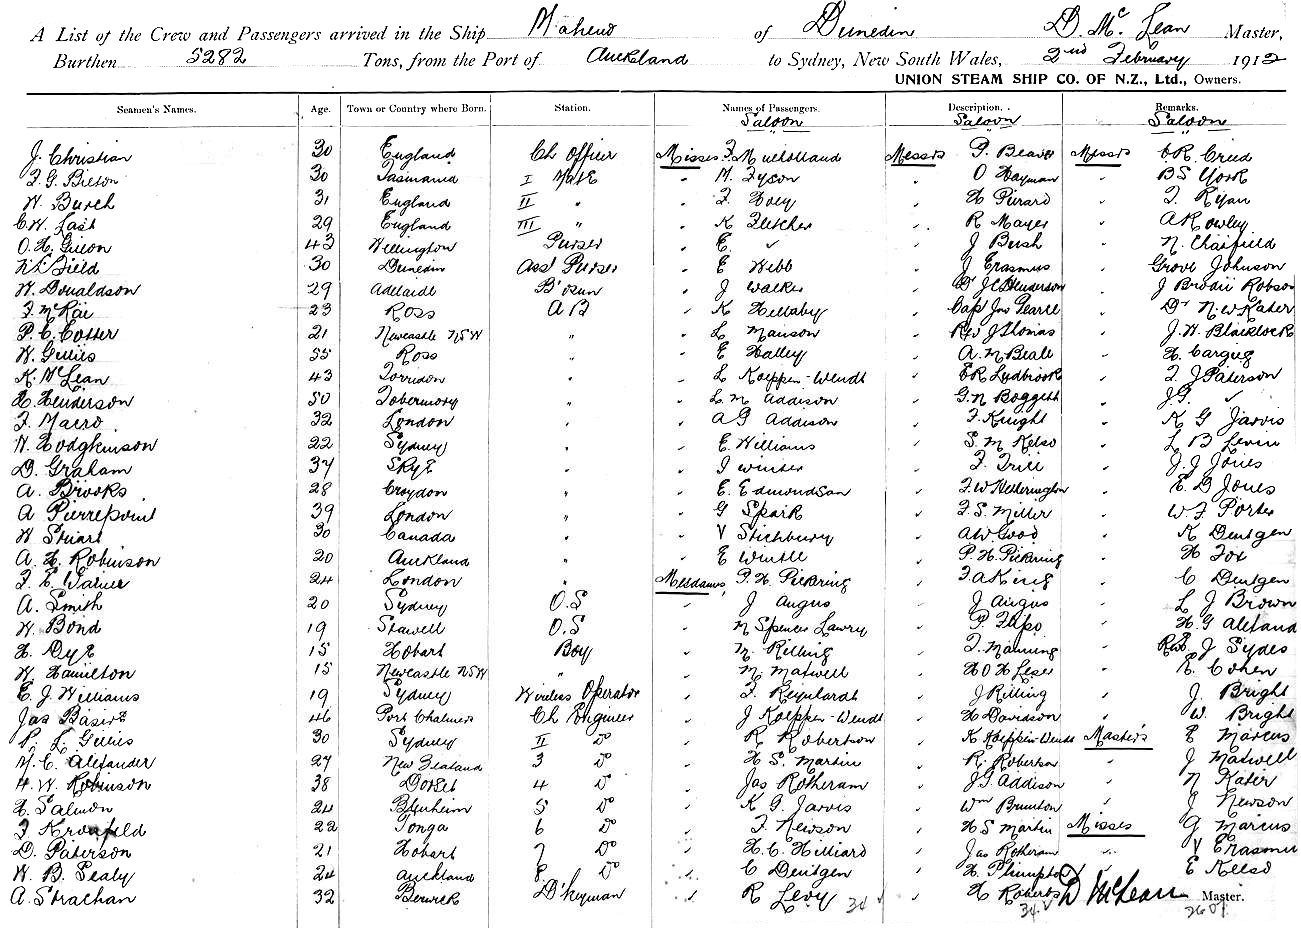 A List of the Crew and Passengers arrived in the Ship Maheno of Dunedin D. McLean Master,
Burthen 5282 Tons, from the Port of Auckland to Sydney, New South Wales, 2nd February 1912
UNION STEAM SHIP CO. OF N.Z., Ltd., Owners.
Seamen's Names. Age. Town or Country where Born. Station. Names of Passengers. Description. Remarks.
Saloon Saloon Saloon
J. Christian 30 England Ch Officer Misses F. Mulholland Messrs P. Beaver Messrs Creed
30 Tasmania I Mate " M. Tyson " O Hayman " B S York
W. Burch 31 England II " " F Hoey " H " F. Ryan
C. W. Last 29 England III " " K Fletcher " R Mayer " A Rowley
O. H. 43 Wellington Purser " E. " " J Bush " N. Chatfield
Field 30 Dunedin Asst Purser " E Webb " J Erasmus " Grove Johnson
W. Donaldson 29 Adelaide B'osun " J Walker " Dr J C Henderson " J Brodie Robson
F. McRae 23 Ross A B " K Hellaby " Capt Jno Pearce " Dr N. W Kater
P. C. Cotter 21 Newcastle NSW " " L Manson " Rev J Thomas " J. H. Blacklock
W. Gillies 55 Ross " " E Halley " A. M. Beale " H. Cargieg
K. McLean 43 Torridon " " L Koeppen-Wendt " E R Ludbrook " T J Paterson
H. Henderson 50 Tobermory " " L. M Addison " G. N Boggett " J. G. "
F. Marro 32 London " " A G Addison " F. Knight " K G Jarvis
W. Hodgkinson 22 Sydney " " E. Williams " S. M. Kelso " L B Levin
D. Graham 37 Skye " " J Winter " F. Trice " J. J Jones
A. Brooks 28 Croydon " " E. Edmondson " F. W Hetherington " E. D Jones
A Pierrepoint 39 London " " G Spark " F. S. Miller " W F Porter
W Stuart 30 Canada " " V Stichbury " A W Good " K Dentgen
A. H. Robinson 20 Auckland " " E Windle " P. H. Pickering " H Fox
24 London " Mesdames P. H. Pickering " F. A King " C Dentgen
A. Smith 20 Sydney O. S " J Angus " J Angus " L J Brown
W. Bond 19 Stawell O. S " M Spencer Lawry " P. " H. G
H. Dye 15 Hobart Boy " M. Rilling " F. Manning " Revd J Sydes
W Hamilton 15 Newcastle NSW " " M. Maxwell " " E. Cohen
E. J. Williams 19 Sydney Wireless Operator " F. Reynhardt " J Rilling " J. Bright
Jas Basire 46 Port Chalmers Ch Engineer " J Koeppen-Wendt " H Davidson " W. Bright
L Gillies 30 Sydney II Do " R Robertson " K Koeppen-Wendt Masters E Marcus
C. Alexander 27 New Zealand 3 Do " H S. Martin " R. Robertson " J Maxwell
H. W. Robinson 38 Dorset 4 Do " Jas Rotheram " J. G. Addison " N Kater
H. Salmon 24 Blenheim 5 Do " K. G. Jarvis " Wm Brunton " J Newson
F Kronfeld 22 Tonga 6 Do " F. Newson " H S Martin Misses G Marcus
D. Paterson 21 Hobart 7 Do " H. C. Hilliard " Jas Rotheram " V Erasmus
W. B. Sealy 24 Auckland 8 Do " C Dentgen " H. Plumpton " E Kelso
A. Strachan 32 Berwick D'keyman " R Levy " H Roberts D McLean Master.
34 34